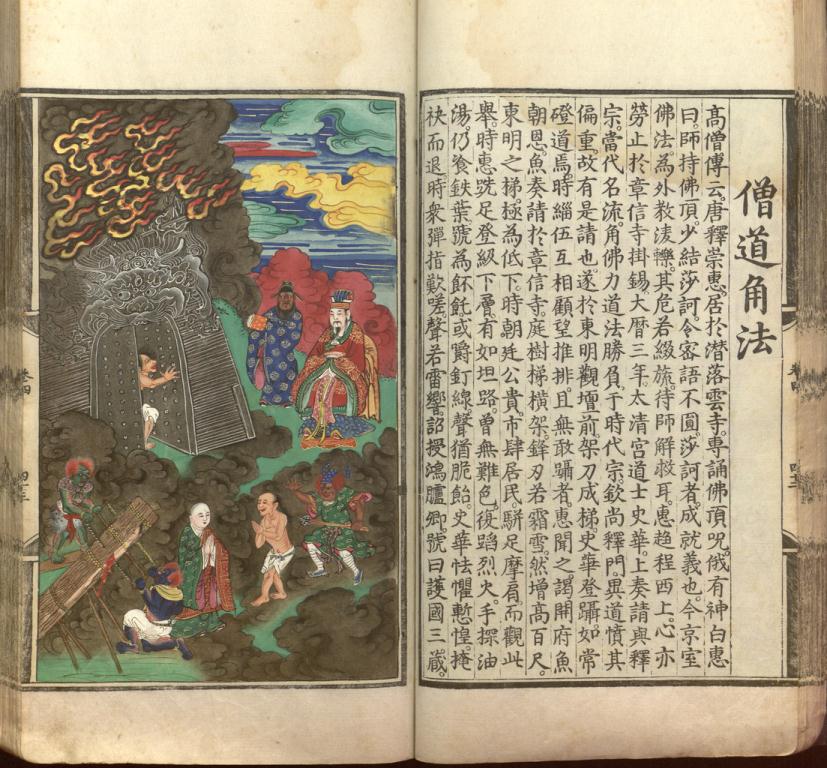 僧道角法
高僧傳云。唐釋崇惠。居於潛落雲寺。專誦佛頂咒。俄有神白惠
曰。師持佛頂。少結莎訶。令密語不圓。莎訶者。成就義也。今京室
佛法為外教凌轢。其危若綴旒。待師解救耳。惠趨程西上。心亦
勞止。於章信寺掛錫。大曆三年。太清宮道士史華。上奏請與釋
宗。當代名流。角佛力道法勝負。于時代宗。欽尚釋門。異道憤其
偏重。故有是請也。遂於東明觀壇前。架刀成梯。史華登躡如常
磴道焉。時緇伍互相顧望推排。且無敢躡者。惠聞之。謁開府魚
朝恩。魚奏請於章信寺。庭樹梯橫架。鋒刃若霜雪。然增高百尺。
東明之梯。極為低下。時朝廷公貴。市肆居民。駢足摩肩。而觀此
舉。時惠跣足登級下層。有如坦路。曾無難色。復蹈烈火。手探油
湯。仍餐鉄葉。號為餺飥。或嚼釘線。聲猶脆飴。史華怯懼慙惶。掩
袂而退。時衆彈指歎嗟。聲若雷響。詔授鴻臚卿。號曰護國三藏。
卷四
四十三